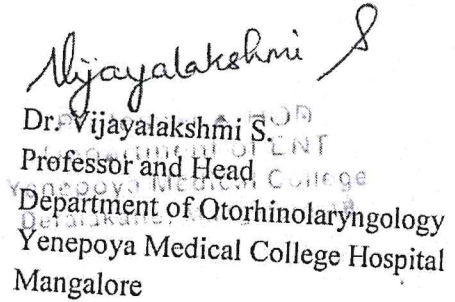 Vijayalakshmi S
Dr. Vijayalakshmi S.
Professor and Head
Department of Otorhinolaryngology
Yenepoya Medical College Hospital
Mangalore
HOD
Department of ENT
Yenepoya Medical College